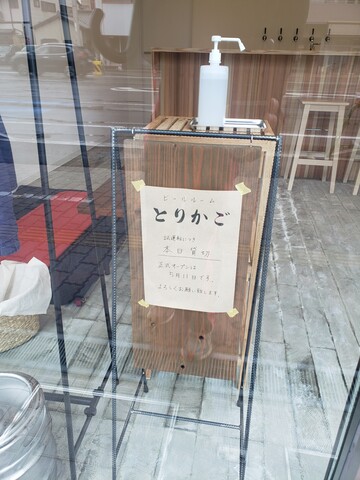 ビールルーム
とりかご
試運転につき
本日貸切
正式オープンは
11月11日です。
よろしくお願い致します